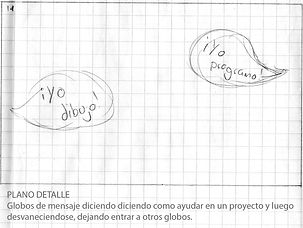 14
¡Yo
programo!
¡Yo
dibujo!
PLANO DETALLE
Globos de mensaje diciendo diciendo como ayudar en un proyecto y luego
desvaneciendose, dejando entrar a otros globos.